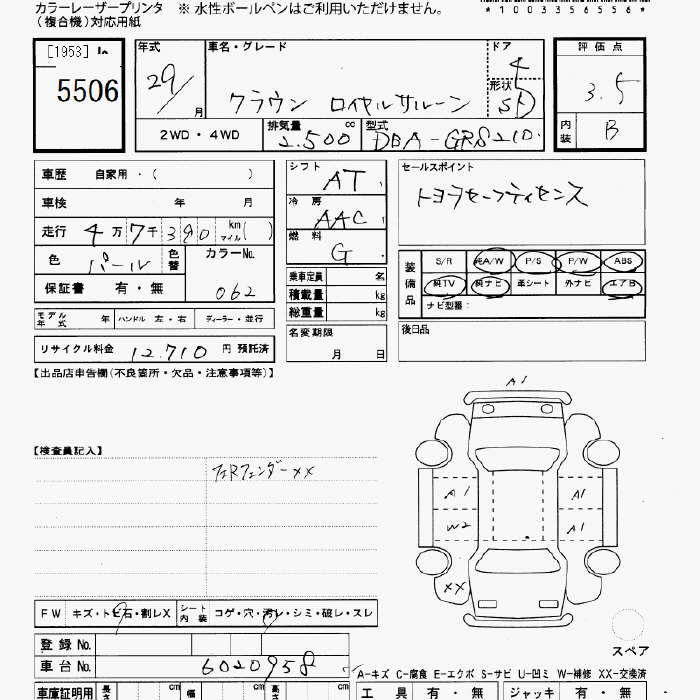 カラーレーザープリンタ ※ 水性ボールペンはご利用いただけません。
(複合機)対応用紙
*1003356556*
[1953] 年式 車名・グレード ドア 評価点
5506 29/ 月 クラウン ロイヤルサルーン 4 形状 SD 3.5
2WD・4WD 排気量 cc 2.500 型式 DBA-GRS210 内装 B
車歴 自家用・( ) シフト AT セールスポイント
車検 年 月 冷房 AAC トヨタセーフティセンス
走行 4万7千390 km マイル ( ) 燃料 G
色 パール 色替 カラーNo. 062 乗車定員 名
保証書 有・無 積載量 kg
装備品 S/R 純A/W P/S P/W ABS
純TV 純ナビ 革シート 外ナビ エアB
ナビ型番:
モデル年式 年 ハンドル 左・右 ディーラー・並行 総重量 kg 後日品
リサイクル料金 12,710 円 預託済 名変期限 月 日
【出品店申告欄(不良箇所・欠品・注意事項等)】
A1
【検査員記入】
フェンダーXX
A1 A1
W2 A1
XX
FW キズ・トビ石・割レX シート内装 コゲ・穴・汚レ・シミ・破レ・スレ
登録No. スペア
車台No. 6020958
A-キズ C-腐食 E-エクボ S-サビ U-凹ミ W-補修 XX-交換済
車庫証明用 長さ cm 幅 cm 高さ cm 工具 有・無 ジャッキ 有・無